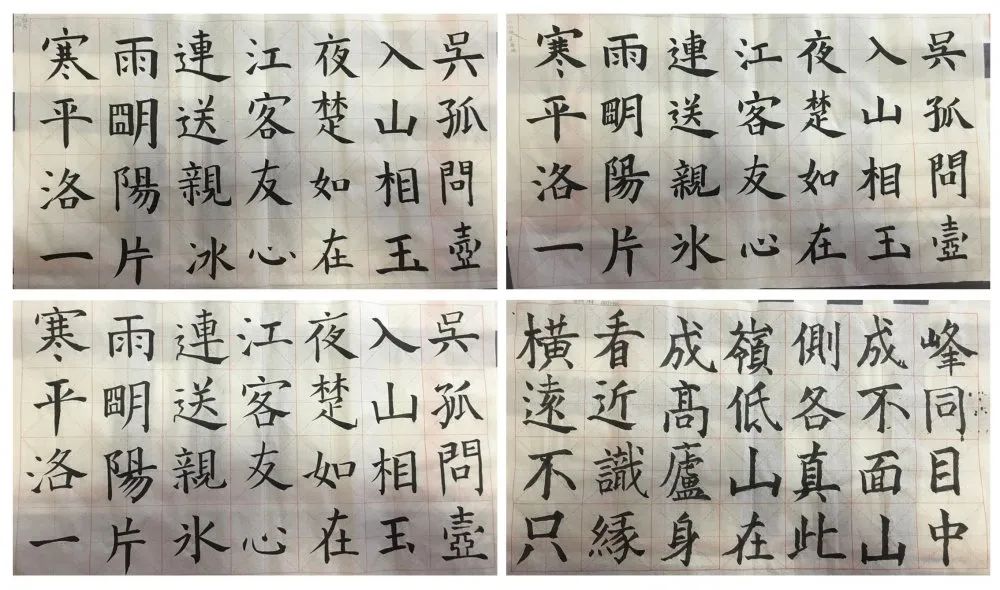 寒雨連江夜入吳
平朙送客楚山孤
洛陽親友如相問
一片冰心在玉壺
寒雨連江夜入吳
平朙送客楚山孤
洛陽親友如相問
一片氷心在玉壺
寒雨連江夜入吳
平朙送客楚山孤
洛陽親友如相問
一片氷心在玉壺
橫看成嶺側成峰
遠近髙低各不同
不識廬山真面目
只緣身在此山中